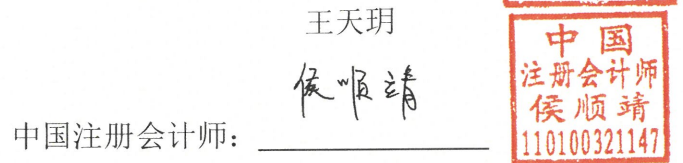 王天玥
侯顺靖
中国注册会计师：
中国
注册会计师
侯顺靖
110100321147